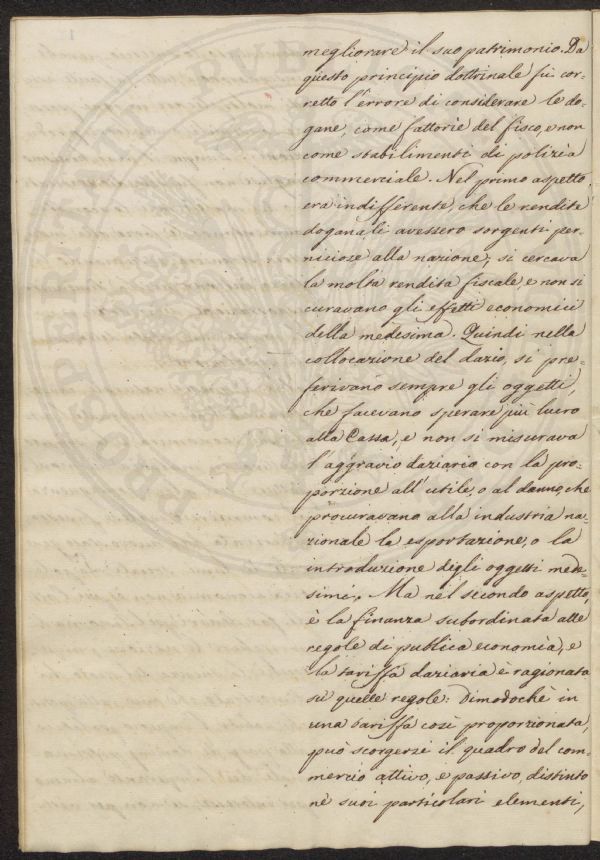 megliorare il suo patrimonio. Da
questo principio dottrinale fù cor=
retto l'errore di considerare le do=
gane, come fattorie del fisco, e non
come stabilimenti di polizìa
commerciale. Nel primo aspetto
era indifferente, che le rendite
doganali avessero sorgenti per=
niciose alla nazione; si cercava
la molta rendita fiscale, e non si
curavano gli effetti economici
della medesima. Quindi nella
collocazione del dazio, si pre=
ferivano sempre gli oggetti,
che facevano sperare più lucro
alla Cassa, e non si misurava
l'aggravio daziario con la pro=
porzione all'utile, o al danno, che
procuravano alla industria na=
zionale la esportazione, o la
introduzione degli oggetti mede=
simi. Ma nel secondo aspetto,
è la finanza subordinata alle
regole di publica economìa, e
la tariffa daziaria è ragionata
sù quelle regole: Dimodochè in
una tariffa così proporzionata,
può scorgersi il quadro del com=
mercio attivo, e passivo, distinto
nè suoi particolari elementi,